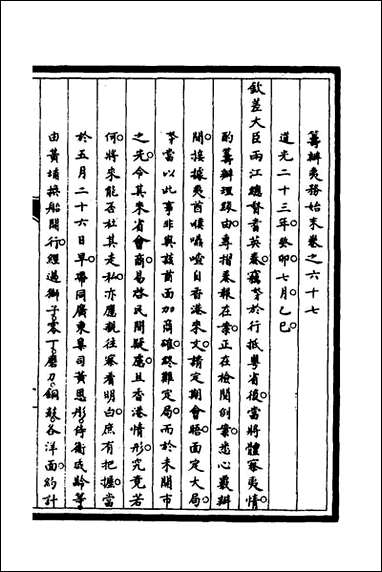 籌辦夷務始末卷之六十七
道光二十三年癸卯七月乙巳
欽差大臣兩江總督耆英奏竊奴才於行抵粵省後當將體察夷情
酌籌辦理緣由專摺奏報在案正在檢閱例案悉心覈辦
間接據夷酋噗嚈喳自香港來文請定期會晤面定大局
奴才當以此事非與該酋面加商確終難定局而於未開市
之先令其來省會商易啓民間疑慮且香港情形究竟若
何將來能否杜其走私亦應親往察看明白庶有把握當
於五月二十六日早帶同廣東臬司黃恩彤侍衛咸齡等
由黃埔換船開行經過獅子零丁磨刀銅鼓各洋面約計